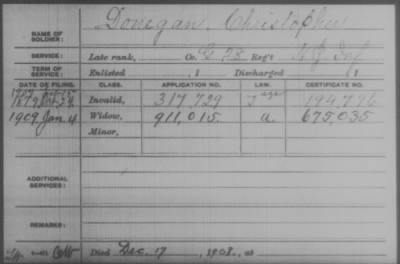 NAME OF SOLDIER: Donegan, Christopher
SERVICE: Late rank, Co. G 73 Reg't N.Y. Inf
TERM OF SERVICE: Enlisted , 1 Discharged , 1
DATE OF FILING. CLASS. APPLICATION NO. LAW. CERTIFICATE NO.
1879 Invalid, 317,729 194,796
1909 Jan 4 Widow, 911,015 a. 675,035
Minor,
ADDITIONAL SERVICES:
REMARKS:
Died Dec. 17, 1908, at